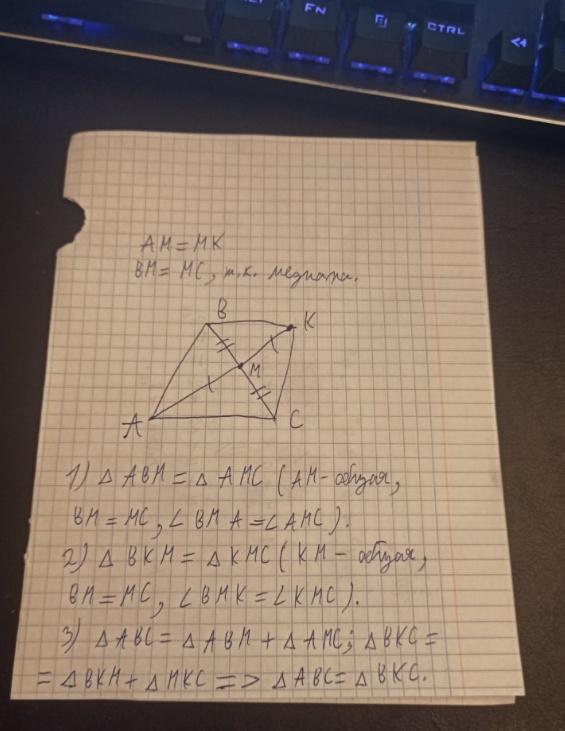 FN
CTRL
AM = MK
BM = MC, т.к. медиана.
B
K
M
A
C
1) △ ABM = △ AMC (AM - общая,
BM = MC, ∠ BMA = ∠AMC).
2) △ BKM = △ KMC (KM - общая,
BM = MC, ∠ BMK = ∠KMC).
3) △ ABC = △ ABM + △ AMC; △ BKC =
= △ BKM + △ MKC => △ ABC = △ BKC.